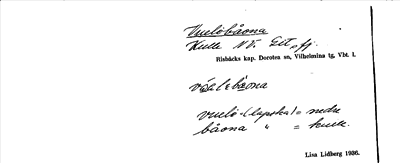 Vuelebåona
Kulle NV. Git.fj.
Risbäcks kap. Dorotea sn, Vilhelmina tg, Vbt. l.
vuelie- (lapska) = nedre
båona " = kulle.
Lisa Lidberg 1936.